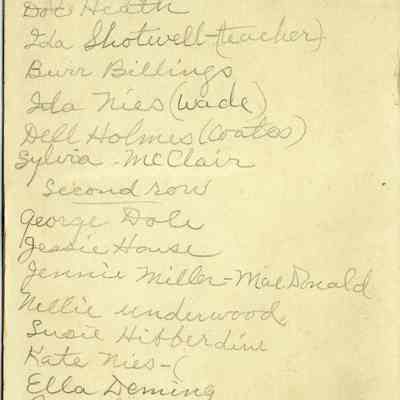 Doc Heath
Ida Shotwell-(teacher)
Burr Billings
Ida Nies (wade)
Dell Holmes (Coates)
Sylvia McClair
Second row
George Dole
Jessie House
Jennie Miller-MacDonald
Nellie underwood
Susie Hibberdine
Kate Nies-(
Ella Deming